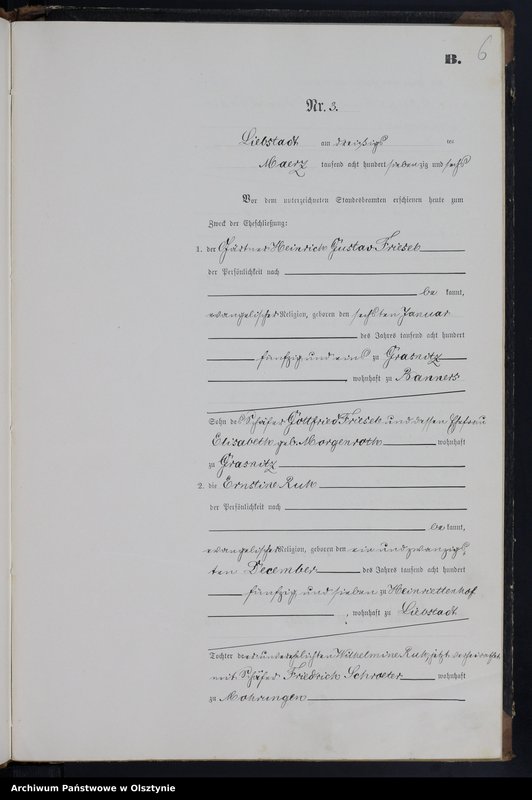 B. 6
Nr. 3.
Liebstadt am dreißigs ten
Maerz tausend acht hundert siebenzig und sechs
Vor dem unterzeichneten Standesbeamten erschienen heute zum
Zweck der Eheschließung:
1. der Gärtner Heinrich Gustav Frieseb
der Persönlichkeit nach
be kannt,
evangelischer Religion, geboren den sechsten Januar
des Jahres tausend acht hundert
fünfzig und eins zu Grasnitz
, wohnhaft zu Banners
Sohn des Schäfer Gottfried Frieseb und dessen Ehefrau
Elisabeth geb. Morgenroth wohnhaft
zu Grasnitz
2. die Ernstine Ruk
der Persönlichkeit nach
be kannt,
evangelischer Religion, geboren den ein und zwanzigs
ten December des Jahres tausend acht hundert
fünfzig und sieben zu Heinriettenhof
, wohnhaft zu Liebstadt
Tochter der unverehlichten Wilhelmine Ruk, jetzt verheirathet
mit Schäfer Friedrich Schroeter wohnhaft
zu Mohrungen
Archiwum Państwowe w Olsztynie